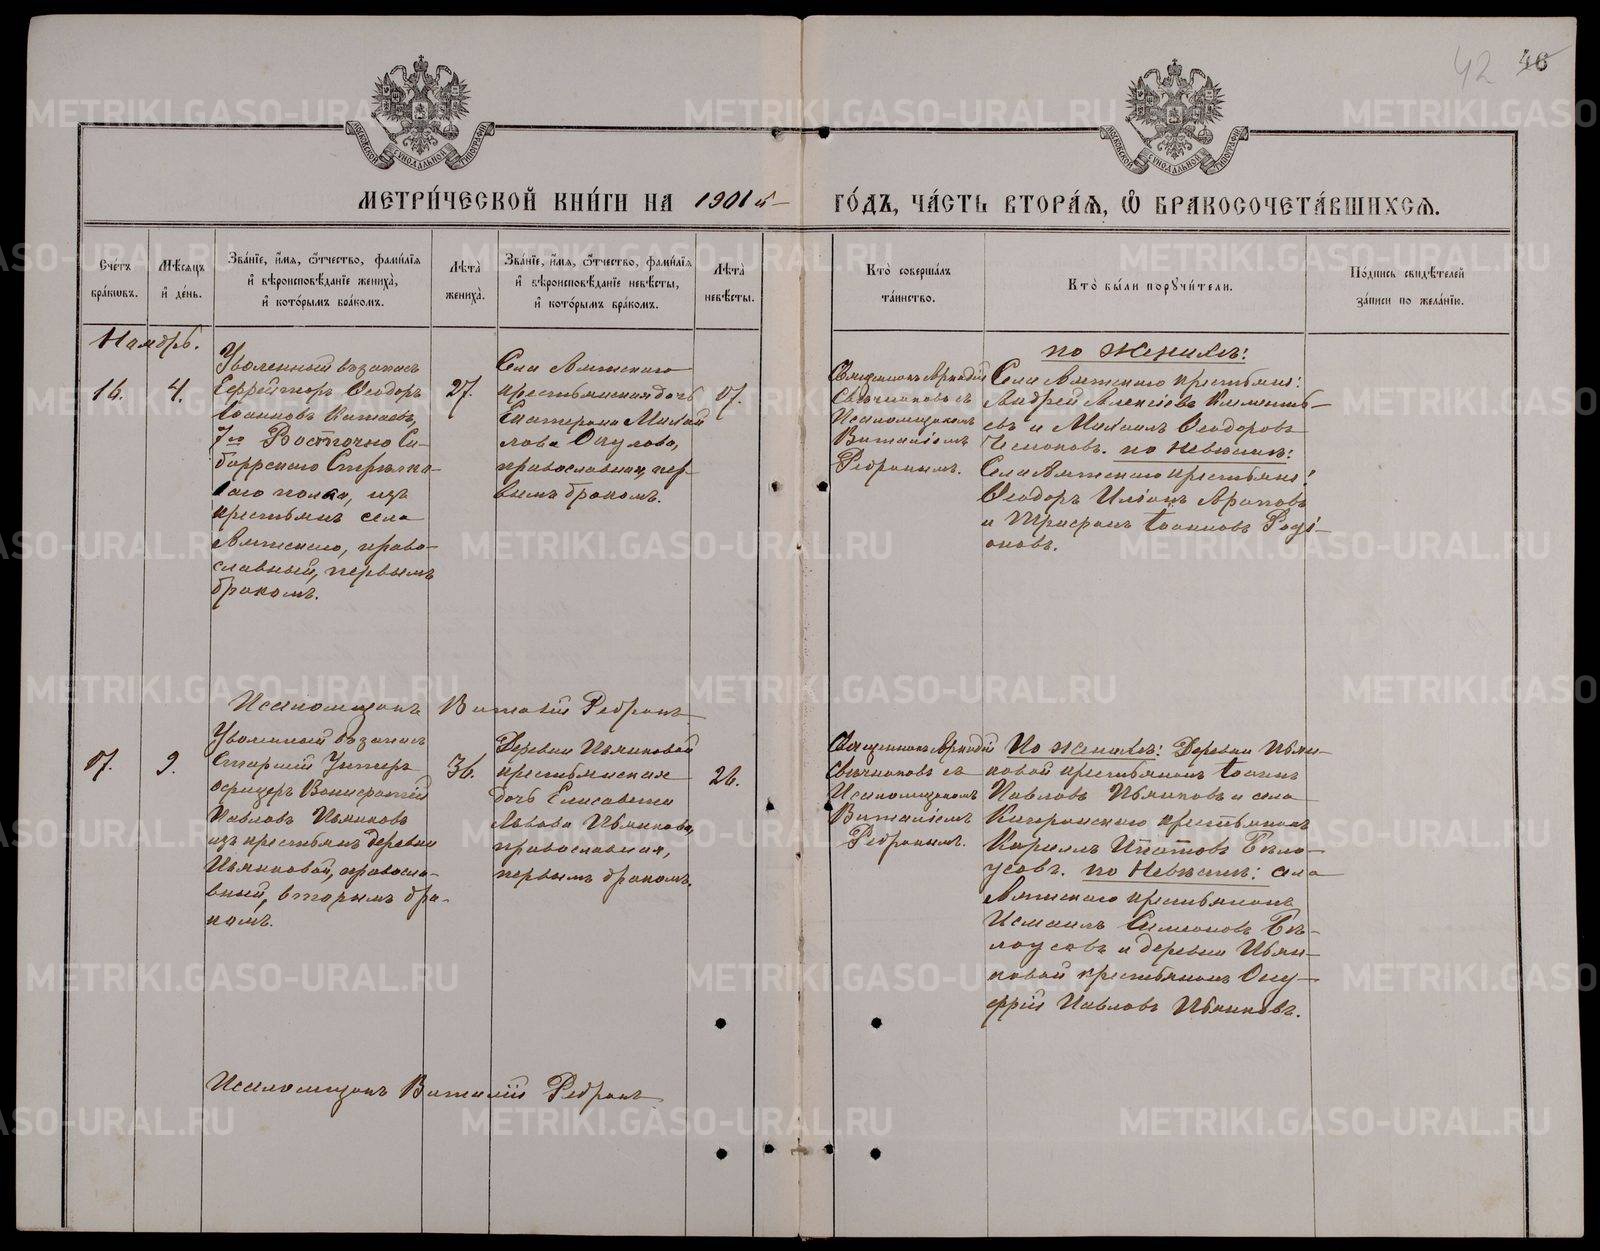 42 46
МЕТРИ́ЧЕСКОЙ КНИ́ГИ НА 1901 й ГО́ДЪ, ЧА́СТЬ ВТОРА́Я, Ѽ БРАКОСОЧЕТА́ВШИХСЯ.
Сче́тъ бра́ковъ.
Мѣ́сяцъ и҆ де́нь.
Зва́нїе, и҆́мя, ѻ҆́тчество, фами́лїя и҆ вѣроисповѣ́данїе жениха̀, и҆ кото́рымъ бра́комъ.
Лѣта̀ жениха̀.
Зва́нїе, и҆́мя, ѻ҆́тчество, фами́лїя и҆ вѣроисповѣ́данїе невѣ́сты, и҆ кото́рымъ бра́комъ.
Лѣта̀ невѣ́сты.
Кто̀ соверша́лъ та́инство.
Кто̀ бы́ли порꙋчи́тели.
По́дпись свидѣ́телей за́писи по жела́нїю.
Ноябрь.
16.
4.
Уволенный въ запасъ
Ефрейторъ Ѳеодоръ
Іоанновъ Китаевъ,
7го Восточно Си-
бирскаго Стрѣлко-
ваго полка, изъ
крестьянъ села
Аятскаго, право-
славный, первымъ
бракомъ.
27.
Села Аятскаго
крестьянская дочь
Екатерина Михаи
лова
православная, пер-
вымъ бракомъ.
17.
Священникъ Аркадій
съ
Псаломщикомъ
Виталіемъ
Ребринымъ.
по женихѣ:
Села Аятскаго крестьяне:
Андрей Алексіевъ Клименть-
евъ и Михаилъ Ѳеодоровъ
по невѣстѣ:
Села Аятскаго крестьяне:
Ѳеодоръ Араповъ
и Трифонъ Іоанновъ Роді-
оновъ.
Псаломщикъ Виталій Ребринъ
17.
9.
Уволенный въ запасъ
Старшій Унтеръ
офицеръ Вонифатій
Павловъ Пьянковъ
изъ крестьянъ деревни
Пьянковой, правосла-
вный, вторымъ бра-
комъ.
36.
Деревни Пьянковой
крестьянская
дочь Елисавета
Львова Пьянкова,
православная,
первымъ бракомъ.
26.
Священникъ Аркадій
съ
Псаломщикомъ
Виталіемъ
Ребринымъ.
По женихѣ: Деревни Пьян-
ковой крестьянинъ Іоаннъ
Павловъ Пьянковъ и села
крестьянинъ
Кириллъ Ипатовъ Бѣло-
усовъ. по Невѣстѣ: села
Аятскаго крестьянинъ
Исмаилъ Симеоновъ Бѣ-
лоусовъ и деревни Пьян-
ковой крестьянинъ Ону-
фрій Павловъ Пьянковъ.
Псаломщикъ Виталій Ребринъ
METRIKI.GASO-URAL.RU